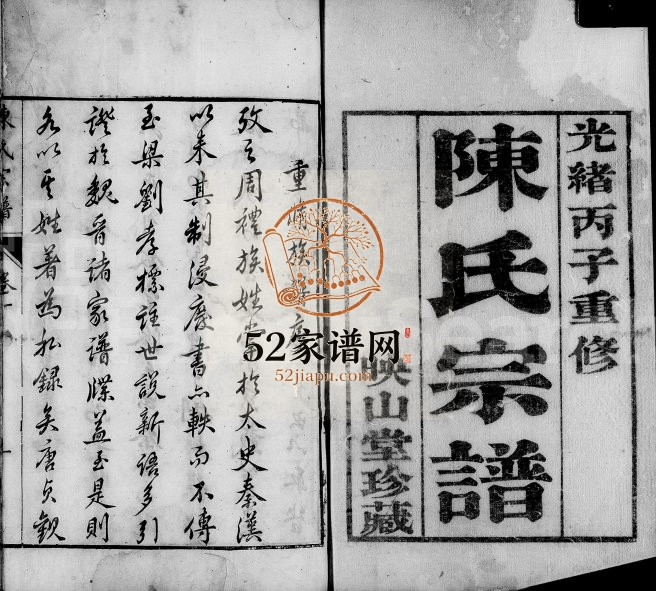 光緒丙子重修
陳氏宗譜
映山堂珍藏
重脩族譜序
攷之周禮族姓掌於太史秦漢
以来其制浸廢書亦軼而不傳
至梁劉孝標註世說新語多引
證於魏晉諸家譜牒蓋至是則
各以其姓著為私錄矣唐貞觀
陳氏宗譜
卷一
52家谱网
52jiapu.com